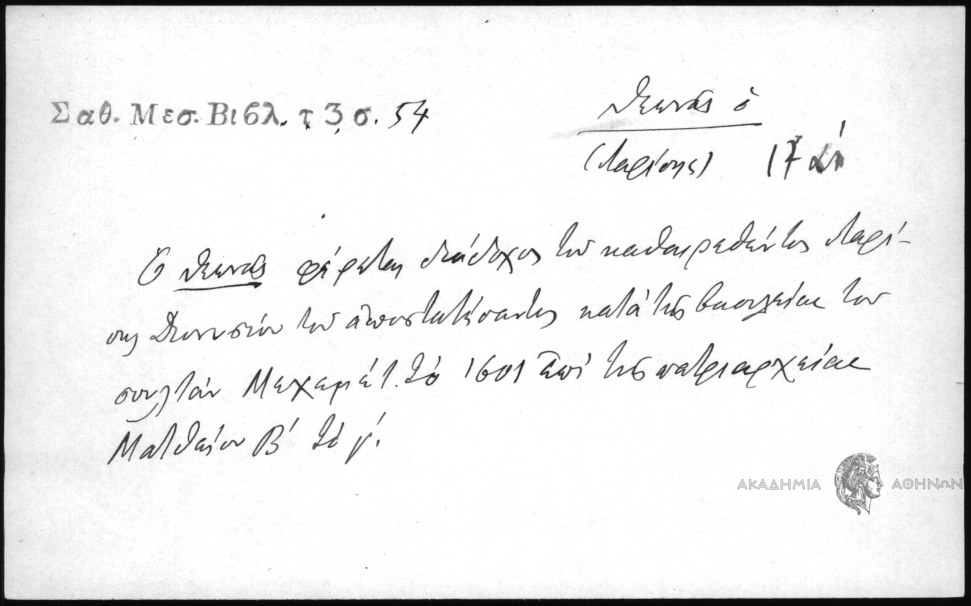 Σαθ. Μεσ. Βιβλ. τ 3 σ. 54
Θεωνάς ὁ
(Λαρίσης) 17
Ὁ Θεωνάς φέρεται διάδοχος τοῦ καθαιρεθέντος Λαρί-
σης Διονυσίου τοῦ ἀποστατήσαντος κατὰ τῆς βασιλείας τοῦ
σουλτὰν Μεχεμέτ. τὸ 1601 ἐπὶ τῆς πατριαρχείας
Ματθαίου Β' τὸ γ'.
ΑΚΑΔΗΜΙΑ ΑΘΗΝΩΝ